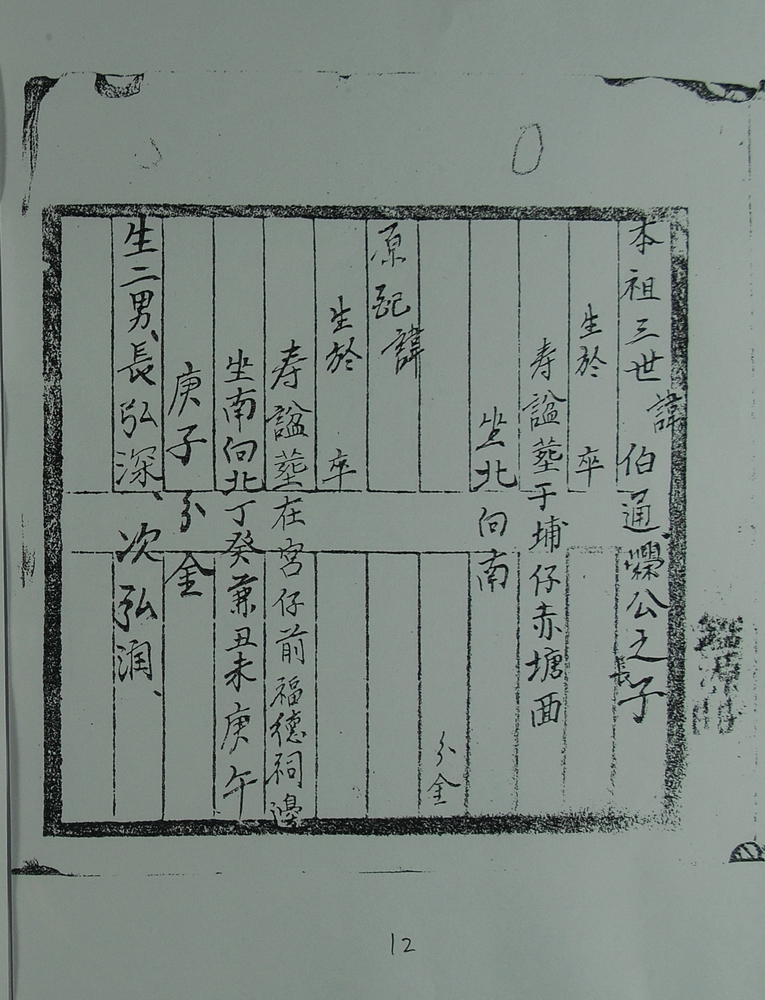 本祖三世諱伯通、爛公之長子
生於 卒
寿諡塟于埔仔赤塘面
坐北向南
分金
原配諱
生於 卒
寿諡塟在宮仔前福德祠邊
坐南向北丁癸兼丑未庚午
庚子分金
生二男、長弘深、次弘潤、
12